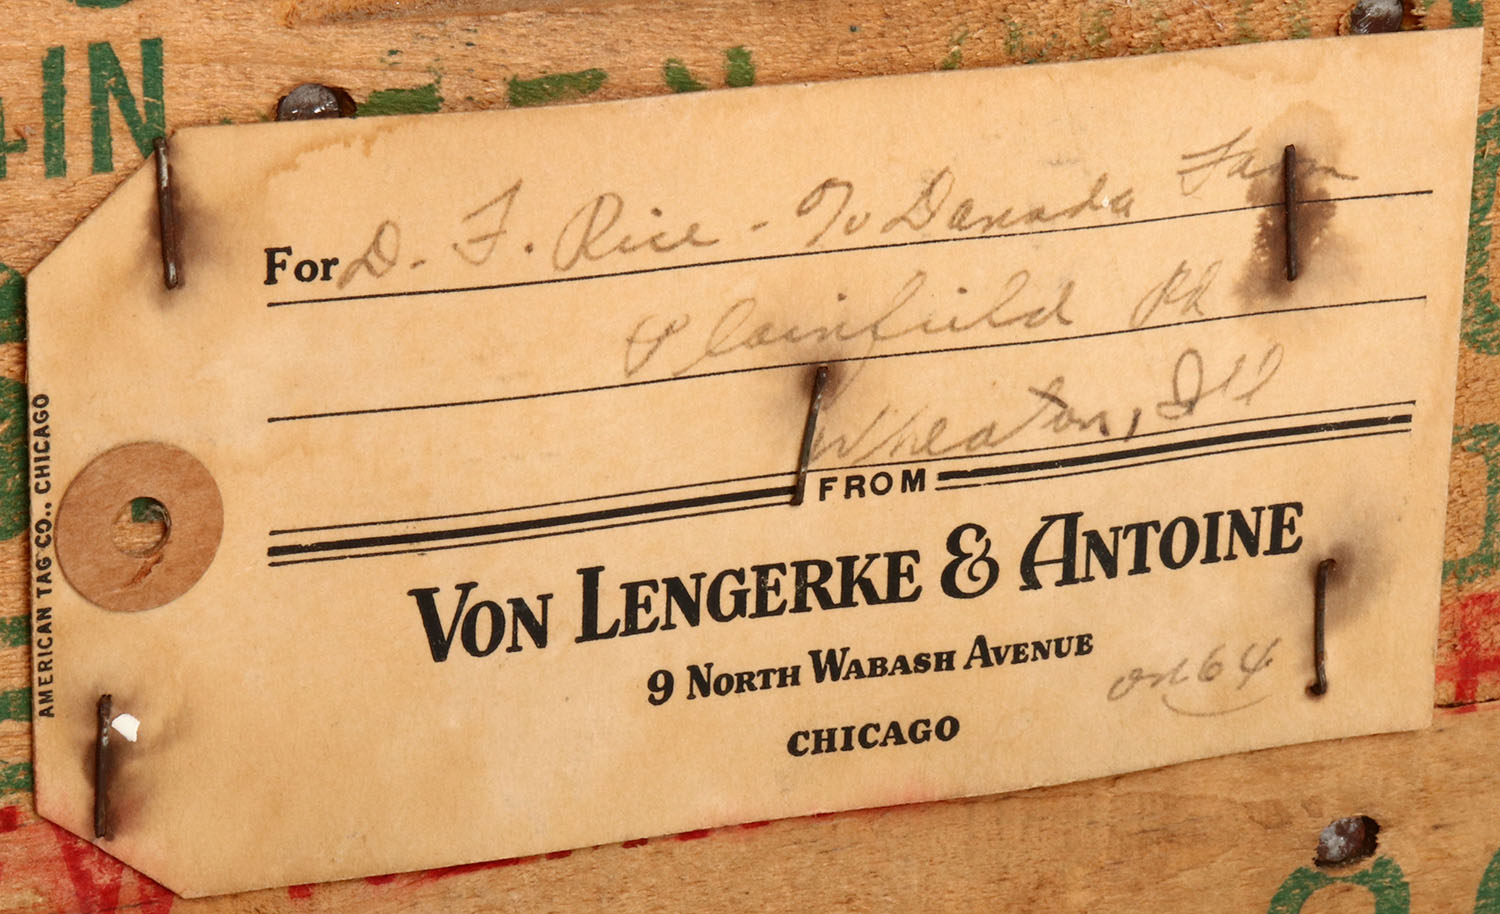 IN
For D. F. Rice - c/o Danada Farm
Plainfield Rd
Wheaton, Ill
FROM
VON LENGERKE & ANTOINE
9 NORTH WABASH AVENUE
CHICAGO
64
AMERICAN TAG CO., CHICAGO